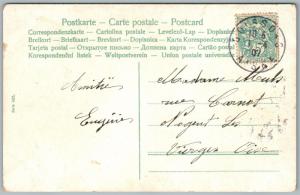 Postkarte - Carte postale - Postcard
Correspondenzkarte - Cartolina postale - Levelező-Lap - Dopisnice
Brefkort - Briefkaart - Brevkort - Dopisnica - Karta Korespondencyjna
Tarjeta postal - Открытое письмо - Дописна карта - Cartão postal
Korrespondenční lístek - Weltpostverein - Union postale universelle
Amitiés
Eugénie
Madame
rue Carnot
Nogent les
Vierges Oise